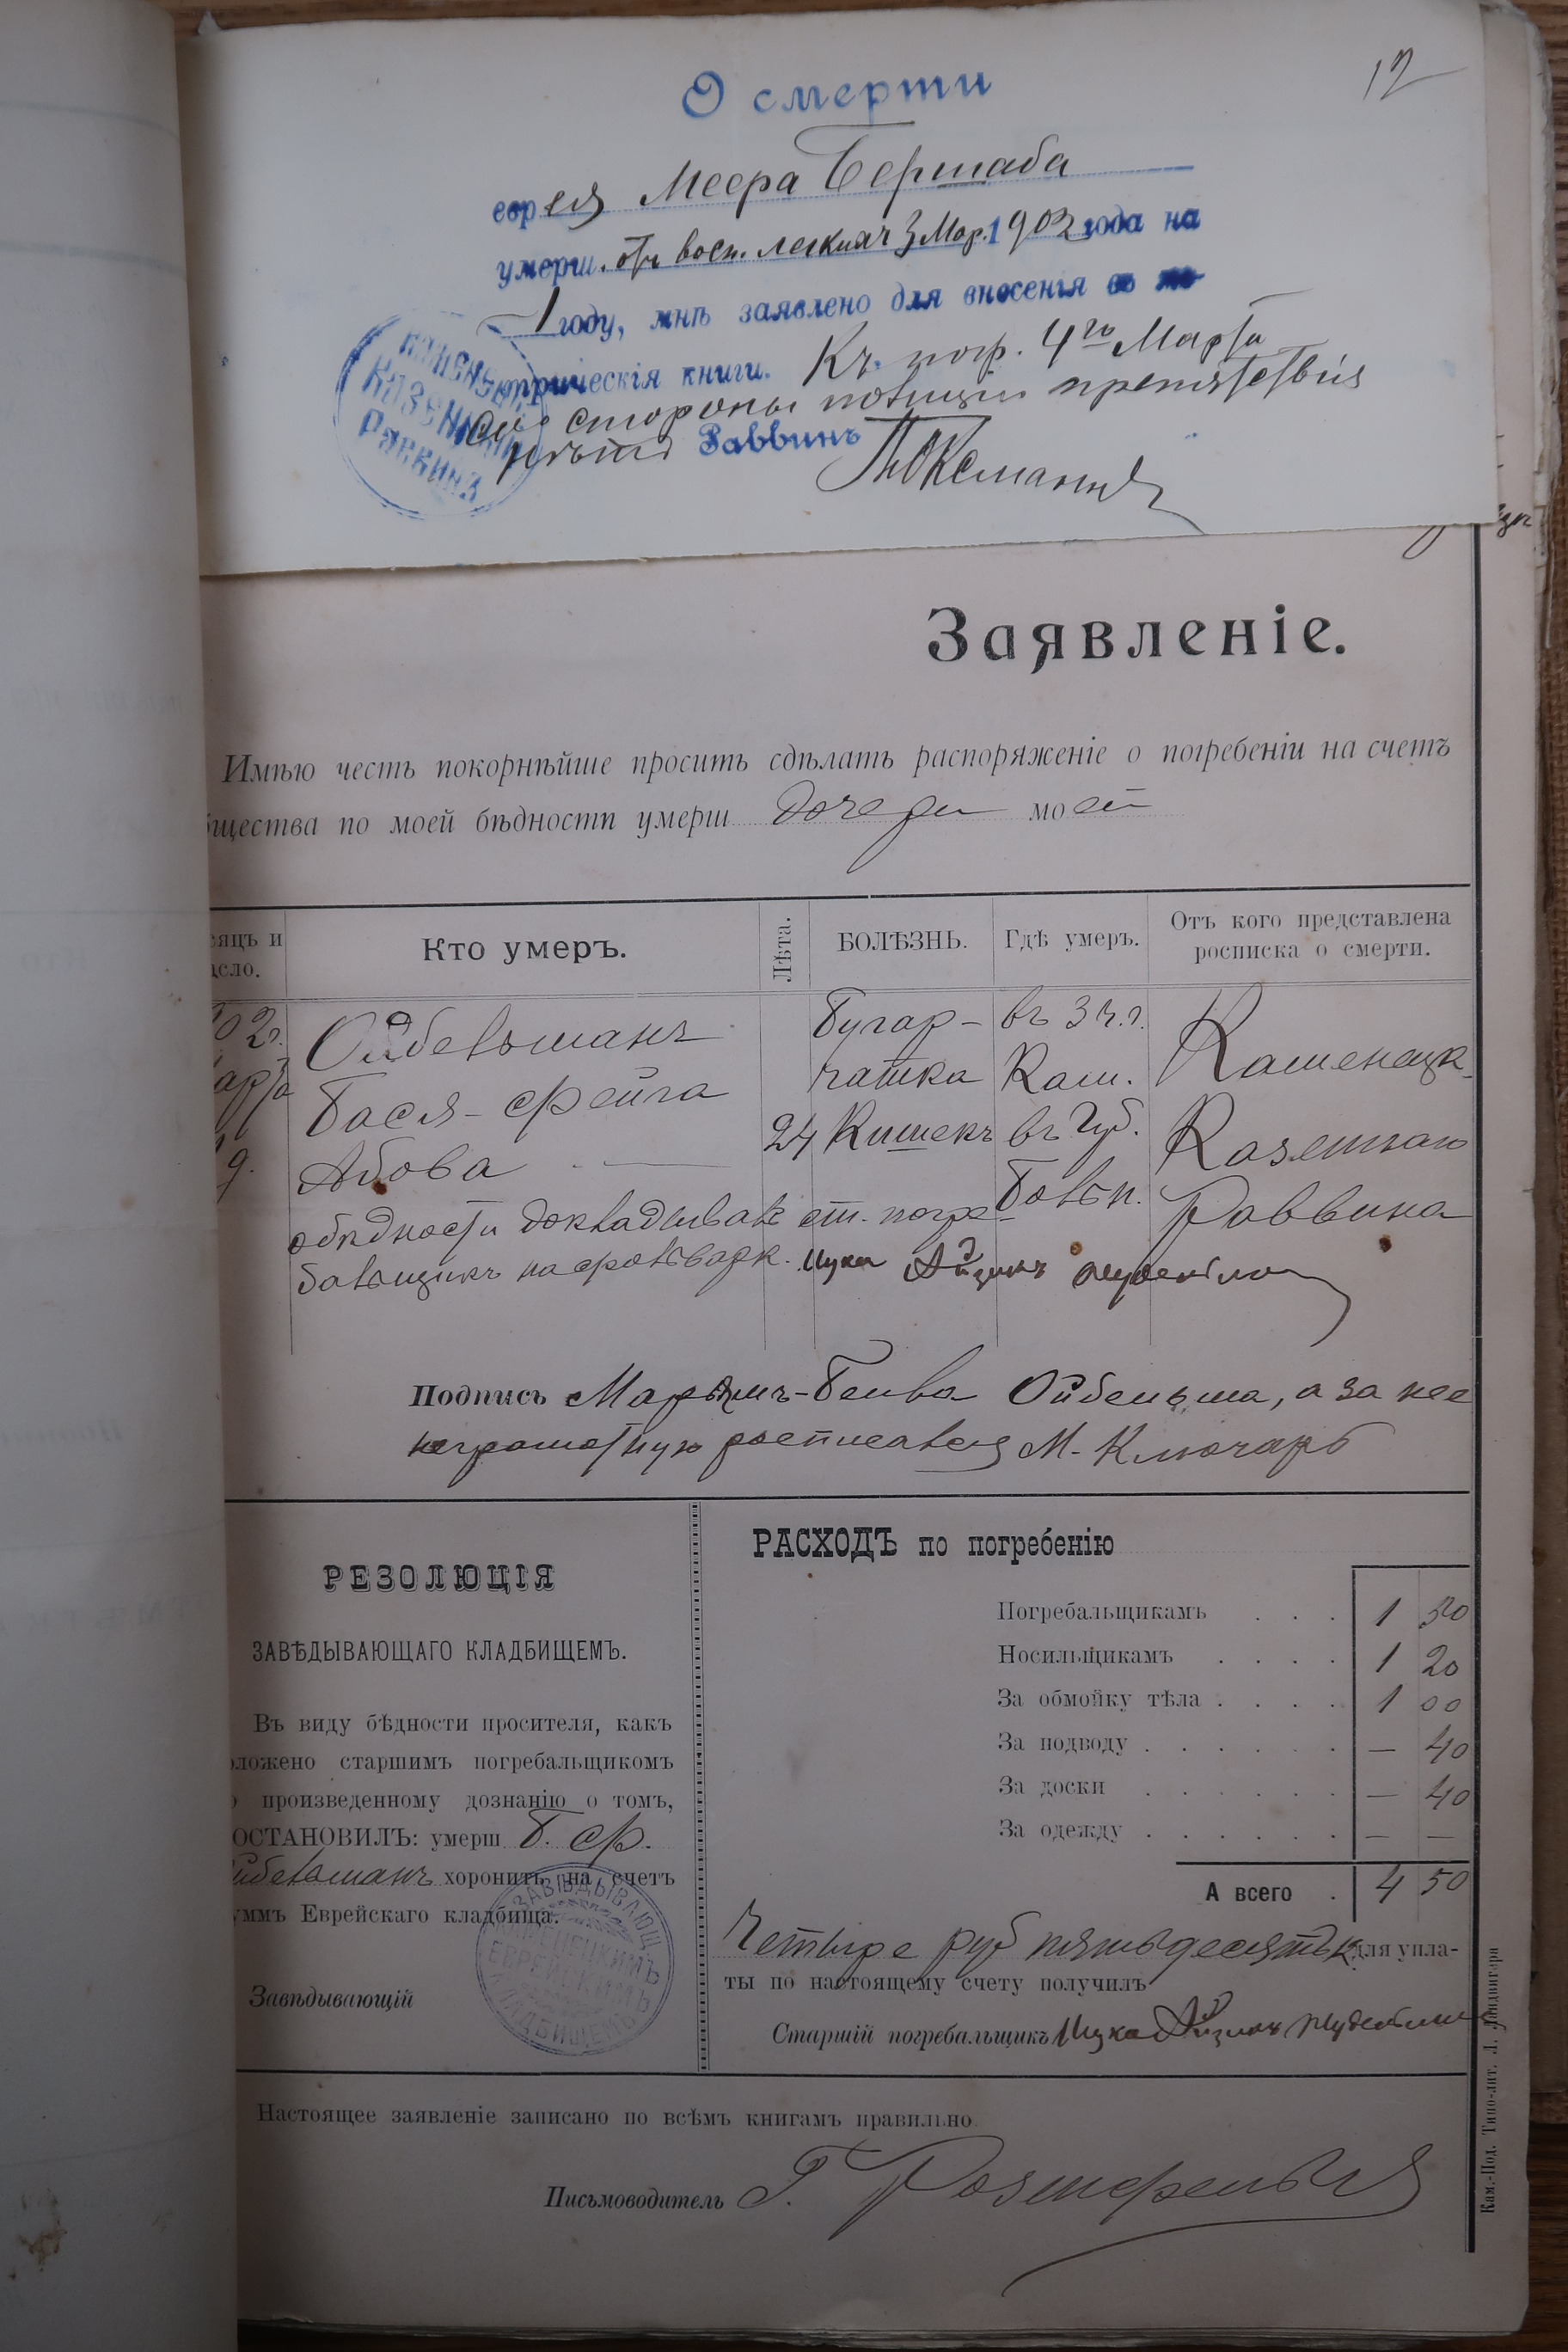 12
О смерти
еврея Меера Бершаба
умерш. отъ восп. легкихъ 3 Мар. 1902 года на
году, мнѣ заявлено для внесенія въ ме
трическія книги. Къ погр. 4го Марта
со стороны полиціи препятствія
нѣтъ Раввинъ
Казенный
Раввинъ
Заявленіе.
Имѣю честь покорнѣйше просить сдѣлать распоряженіе о погребеніи на счетъ
бщества по моей бѣдности умерш дочери моей
яцъ и
сло.
Кто умеръ.
Лѣта.
БОЛѢЗНЬ.
Гдѣ умеръ.
Отъ кого представлена
росписка о смерти.
02 г.
арта
9.
Ойбельманъ
Бася-Фейга
Абова
24
Бугар-
чатка
Кишекъ
въ 3 ч. г.
Кам.
въ Губ.
Больн.
Каменецк.
Казеннаго
Раввина
о бѣдности докладывалъ ст. погре-
бальщикъ на фольварк. Ицко Айзикъ
Подпись Марьямъ-Бейла Ойбельма, а за нее
неграмотную росписался М. Ключаръ
РЕЗОЛЮЦІЯ
ЗАВѢДЫВАЮЩАГО КЛАДБИЩЕМЪ.
Въ виду бѣдности просителя, какъ
ложено старшимъ погребальщикомъ
произведенному дознанію о томъ,
ОСТАНОВИЛЪ: умерш Б. Ф.
йбельманъ хоронить на счетъ
уммъ Еврейскаго кладбища.
Завѣдывающій
ЗАВѢДЫВАЮЩ.
КАМЕНЕЦКИМЪ
ЕВРЕЙСКИМЪ
КЛАДБИЩЕМЪ
РАСХОДЪ по погребенію
Погребальщикамъ . . . 1 50
Носильщикамъ . . . . 1 20
За обмойку тѣла . . . . 1 00
За подводу . . . . . . — 40
За доски . . . . . . — 40
За одежду . . . . . . — —
А всего . 4 50
Четыре руб пятьдесятъ к для упла-
ты по настоящему счету получилъ
Старшій погребальщикъ Ицко Айзикъ
Настоящее заявленіе записано по всѣмъ книгамъ правильно.
Письмоводитель Г. Розенфельд
Кам.-Под. Типо-лит. Л. Ландвигера